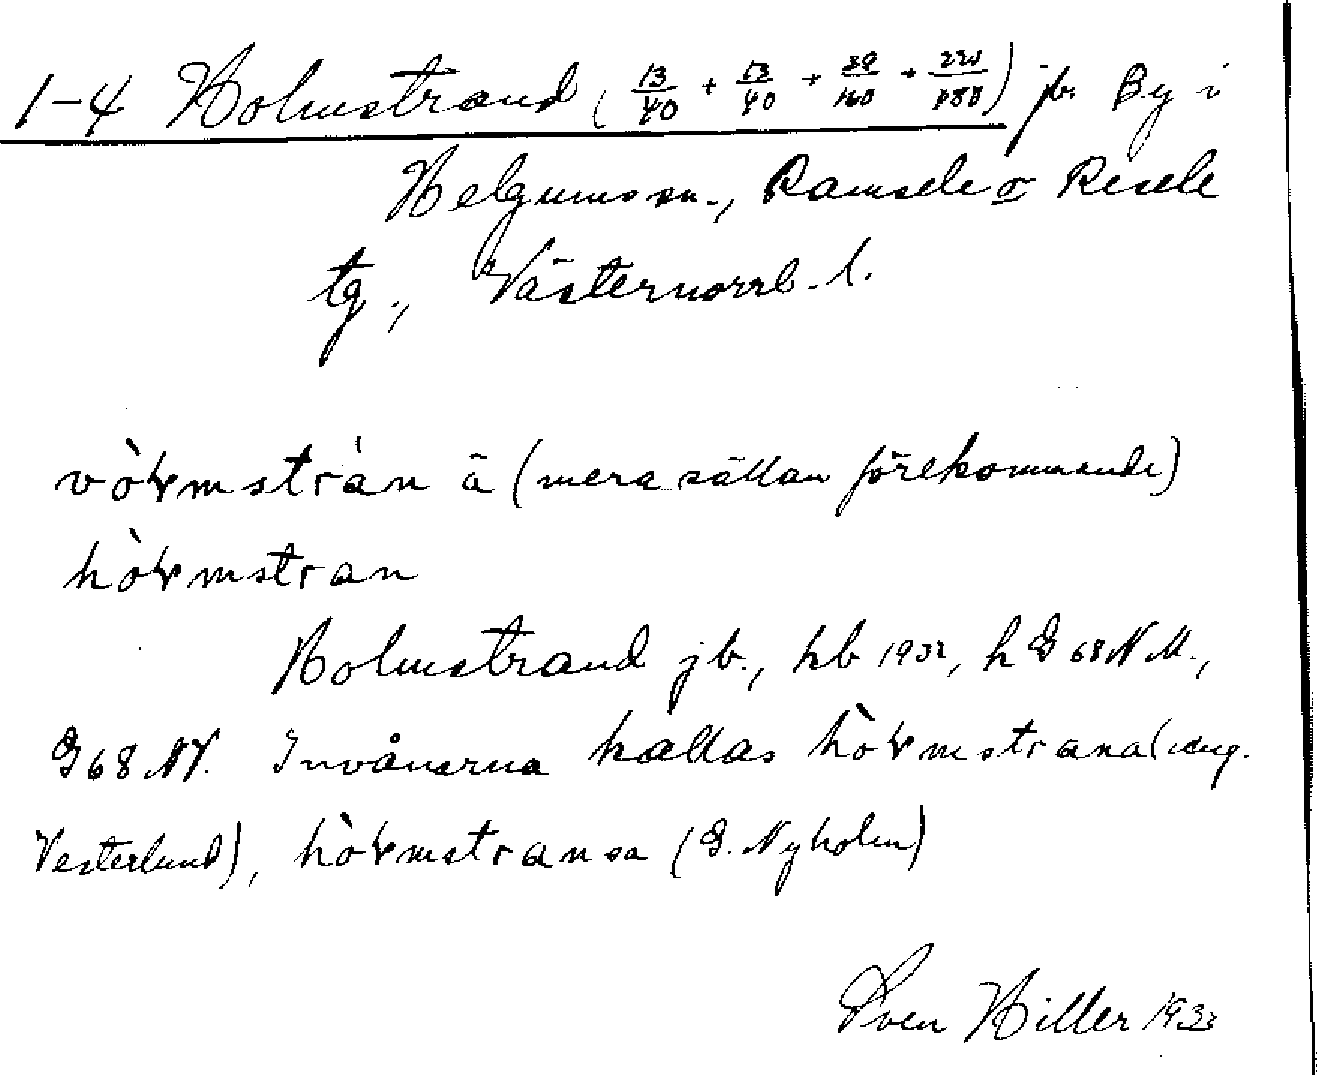 1-4 Holmstrand (13/40 + 13/40 + 39/160 + /) jb. By i
Helgums sn., Ramsele o Resele
tg., Västernorrl. l.
vòɽmstràn ä (mera sällan förekommande)
hòɽmstran
Holmstrand jb., hb 1932, h G 68 N M.,
G 68 NV. Invånarna kallas hòɽmstrana (
Vesterlund), hòɽmstransa (G. Nyholm)
Sven Hiller